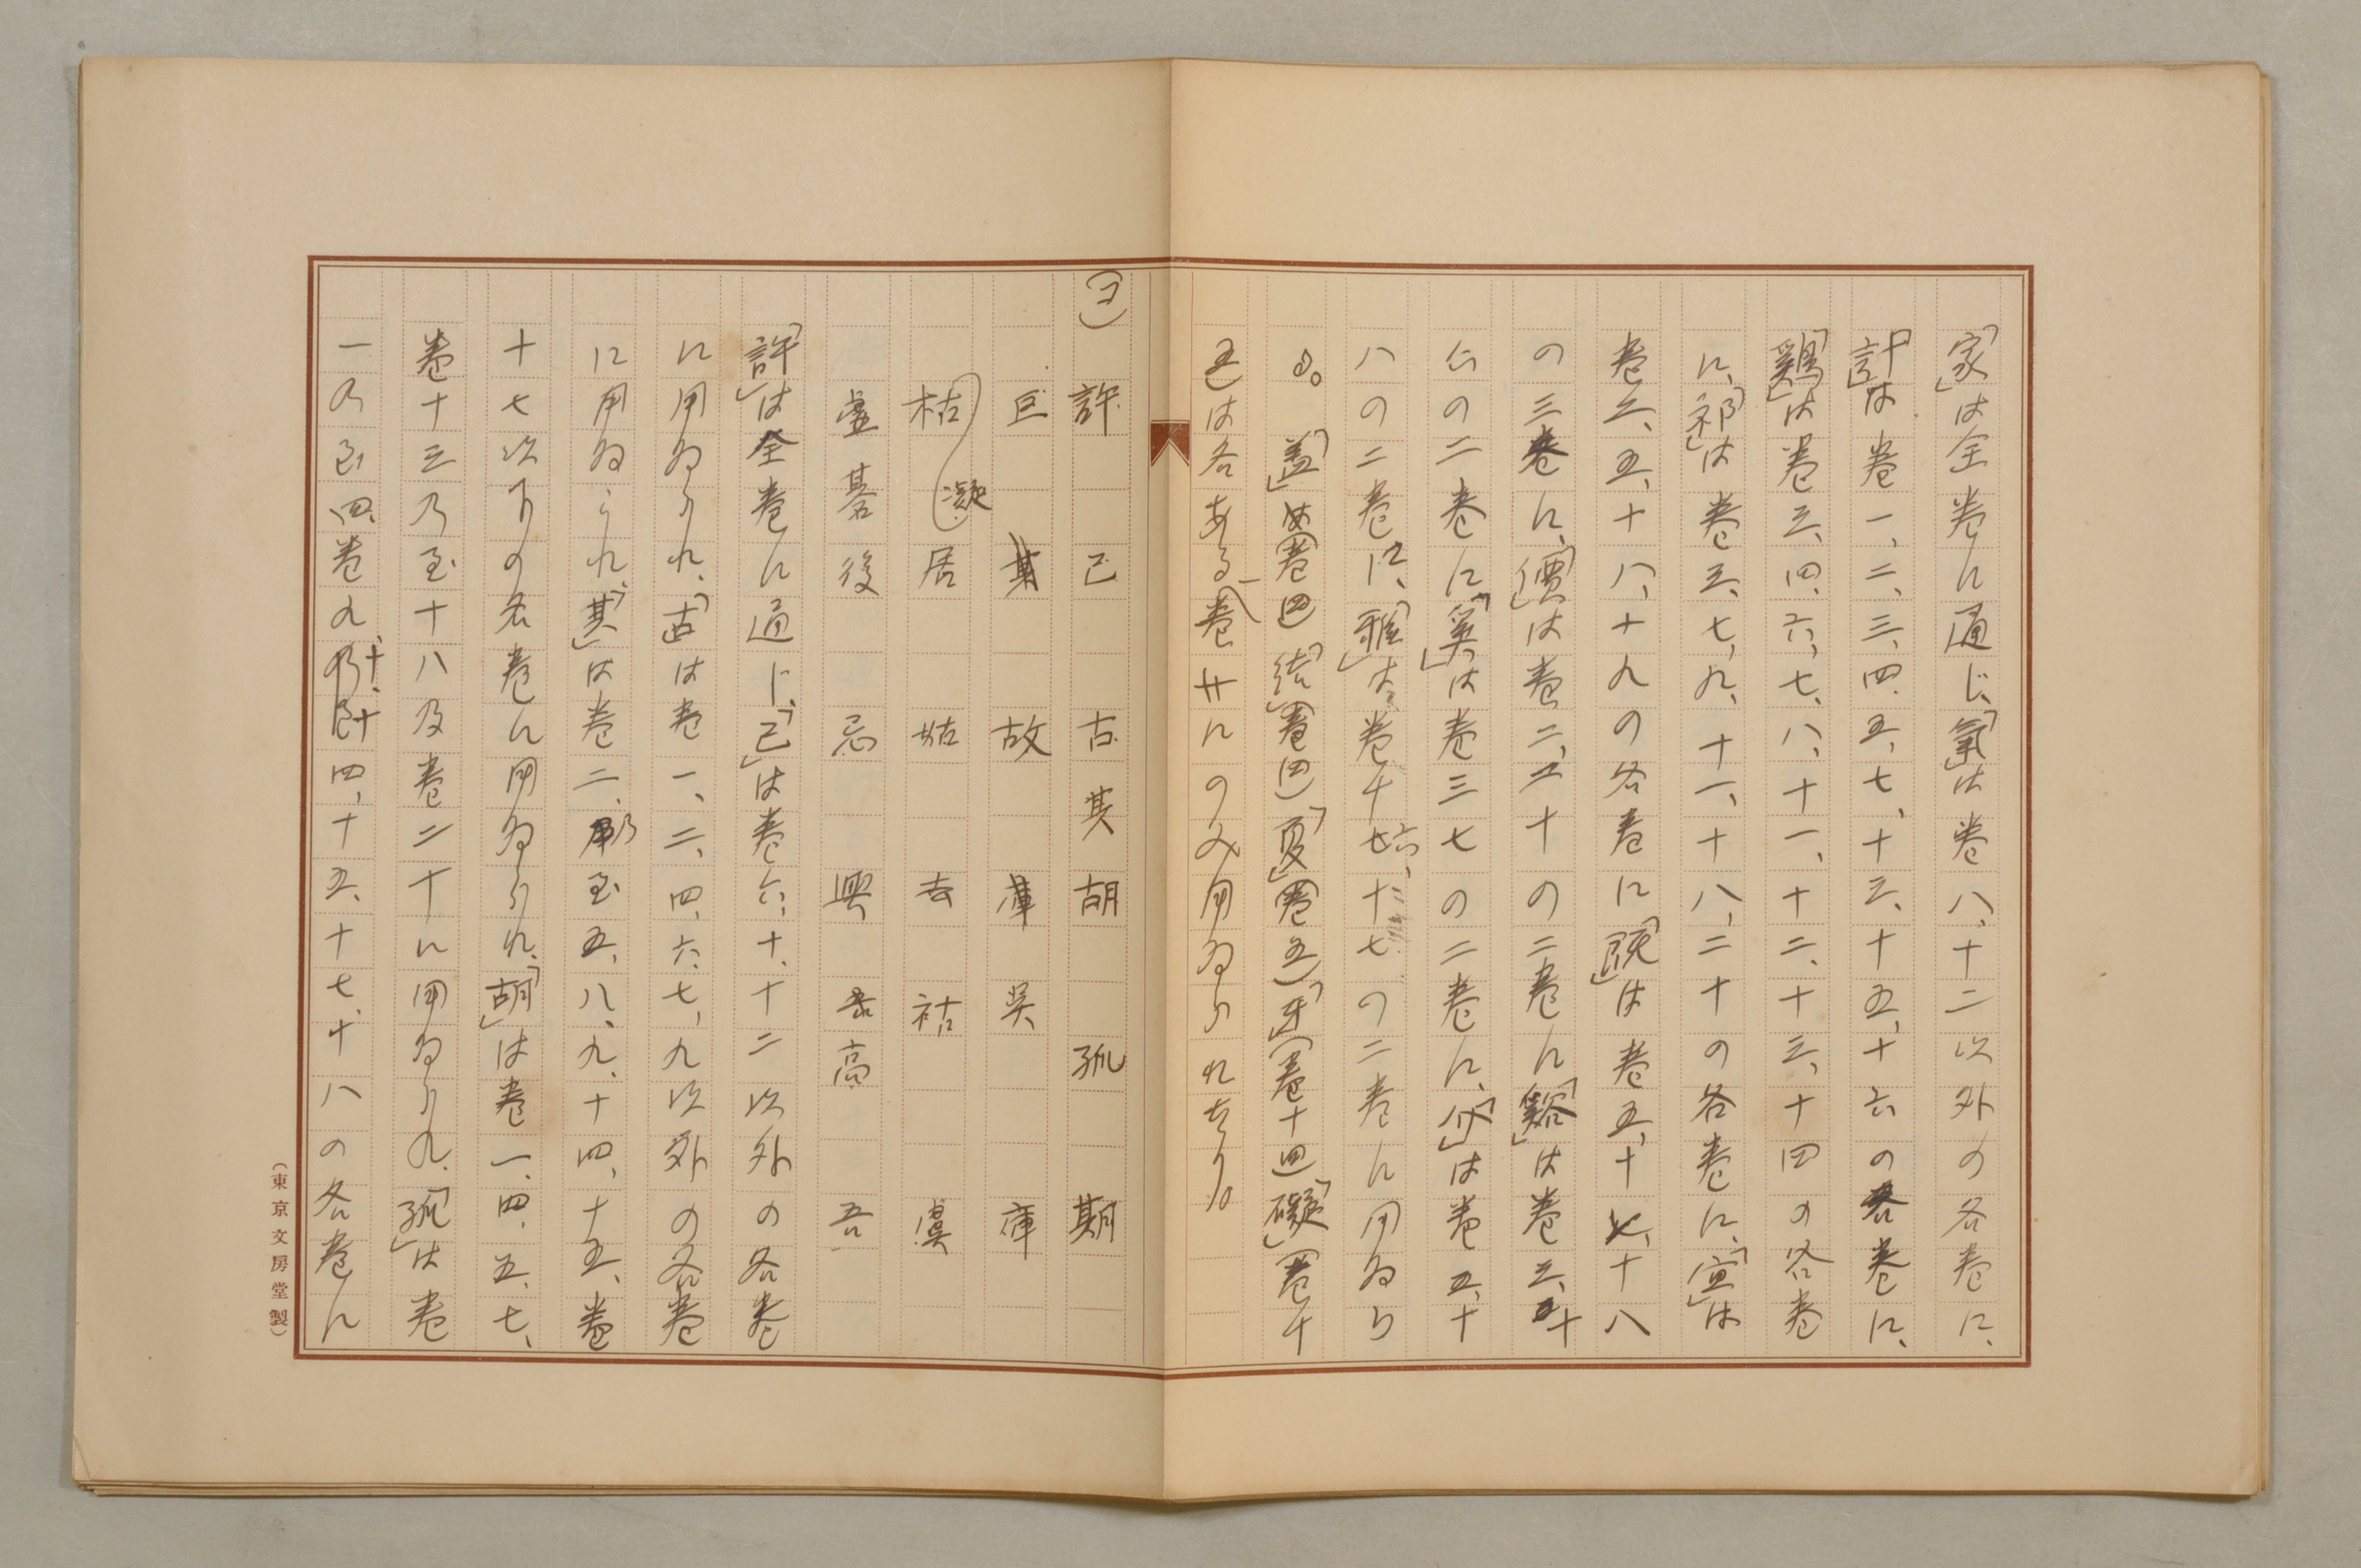 「家」は全巻に通じ、「氣」は巻八、十二以外の各巻に、
「計」は巻一、二、三、四、五、七、十三、十五、十六の各巻に、
「鷄」は巻三、四、六、七、八、十一、十二、十三、十四の各巻
に、「祁」は巻三、七、九、十一、十八、二十の各巻に、「宜」は
巻三、五、十八、十九の各巻に「既」は巻五、十七、十八
の三巻に、「價」は巻二、二十の二巻に「谿」は巻三、十
六の二巻に、「奚」は巻三七の二巻に、「介」は巻五、十
八の二巻に、「雅」は巻十六、十七の二巻に用ゐら
る。「盖」(巻四)「結」(巻四)「夏」(巻五)「牙」(巻十四)「礙」(巻十
五)は各ある一巻にのみ用ゐられたり。
(コ)
許 己 古 其 胡 孤 期
巨 故 庫 吳 庫
枯 凝 居 姑 去 祜 虞
虛 碁 後 忌 興 高 吾
「許」は全巻に通じ、「己」は巻六、十、十二以外の各巻
に用ゐられ、「古」は巻一、二、四、六、七、九以外の各巻
に用ゐられ、「其」は巻二、乃至五、八、九、十四、十五、巻
十七以下の各巻に用ゐられ、「胡」は巻一、四、五、七、
巻十三乃至十八及巻二十に用ゐられ、「孤」は巻
一乃至四、巻九、十、十四、十五、十七、十八の各巻に
(東京文房堂製)